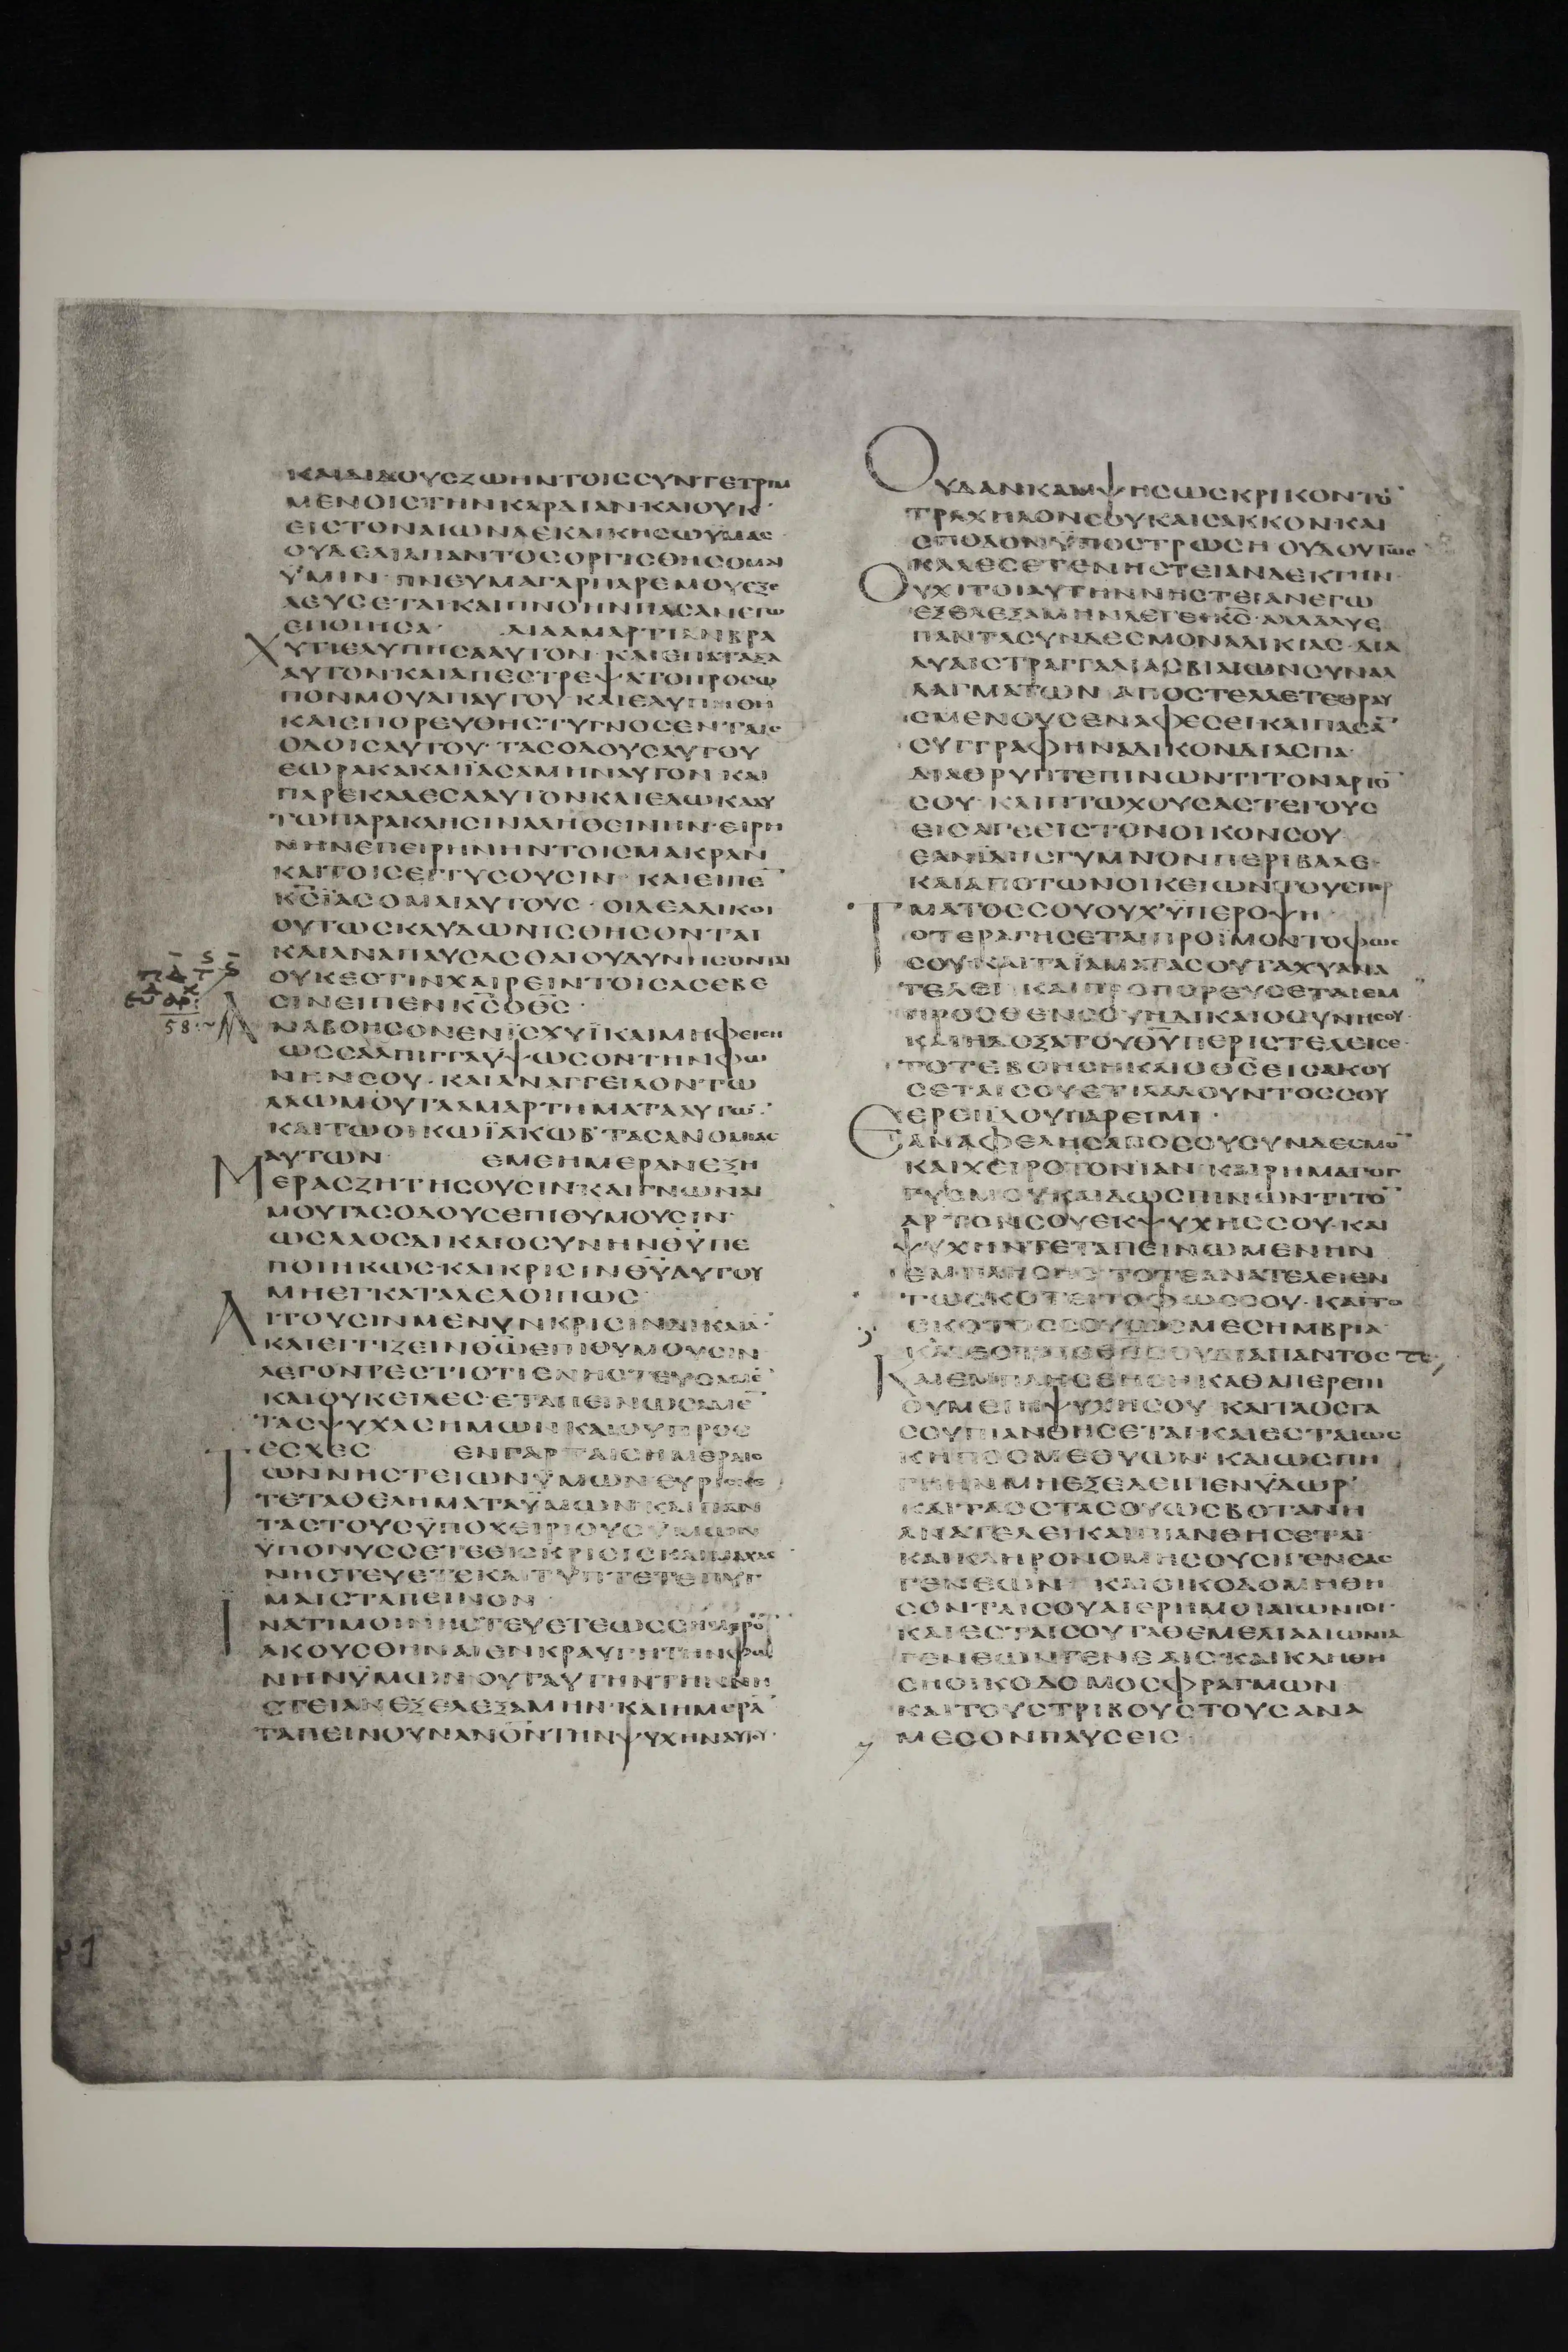 ΚΑΙΔΙΔΟΥСΖωΗΝΤΟΙССΥΝΤΕΤΡΙΜ
ΜΕΝΟΙСΤΗΝΚΑΡΔΙΑΝ·ΚΑΙΟΥΚ
ΕΙСΤΟΝΑΙωΝΑΕΚΔΙΚΗСωΥΜΑС
ΟΥΔΕΔΙΑΠΑΝΤΟСΟΡΓΙСΘΗСΟΜΑΙ
ΫΜΙΝ·ΠΝΕΥΜΑΓΑΡΠΑΡΕΜΟΥΕΞΕ
ΛΕΥСΕΤΑΙΚΑΙΠΝΟΗΝΠΑСΑΝΕΓω
ΕΠΟΙΗСΑ· ΔΙΑΑΜΑΡΤΙΑΝΒΡΑ
ΧΥΤΙΕΛΥΠΗСΑΑΥΤΟΝ·ΚΑΙΕΠΑΤΑΞΑ
ΑΥΤΟΝ·ΚΑΙΑΠΕСΤΡΕΨΑΤΟΠΡΟСω
ΠΟΝΜΟΥΑΠΑΥΤΟΥ·ΚΑΙΕΛΥΠΗΘΗ
ΚΑΙΕΠΟΡΕΥΘΗСΤΥΓΝΟСΕΝΤΑΙС
ΟΔΟΙСΑΥΤΟΥ·ΤΑСΟΔΟΥСΑΥΤΟΥ
ΕωΡΑΚΑΚΑΙΪΑСΑΜΗΝΑΥΤΟΝ·ΚΑΙ
ΠΑΡΕΚΑΛΕСΑΑΥΤΟΝΚΑΙΕΔωΚΑΑΥ
ΤωΠΑΡΑΚΛΗСΙΝΑΛΗΘΕΙΝΗΝ·ΕΙΡΗ
ΝΗΝΕΠΕΙΡΗΝΗΝΤΟΙСΜΑΚΡΑΝ
ΚΑΙΤΟΙСΕΓΓΥСΟΥСΙΝ·ΚΑΙΕΙΠΕ̅
ΚС̅ΪΑСΟΜΑΙΑΥΤΟΥС·ΟΙΔΕΑΔΙΚΟΙ
ΟΥΤωСΚΛΥΔωΝΙСΘΗСΟΝΤΑΙ
ΚΑΙΑΝΑΠΑΥСΑСΘΑΙΟΥΔΥΝΗСΟΝΤΑΙ
ΟΥΚΕСΤΙΝΧΑΙΡΕΙΝΤΟΙСΑСΕΒΕ
СΙΝΕΙΠΕΝΚС̅ΟΘС̅·
ΑΝΑΒΟΗСΟΝΕΝΪСΧΥΪΚΑΙΜΗΦΕΙСΗ
ωССΑΛΠΙΓΓΑΥΨωСΟΝΤΗΝΦω
ΝΗΝСΟΥ·ΚΑΙΑΝΑΓΓΕΙΛΟΝΤω
ΛΑωΜΟΥΤΑΑΜΑΡΤΗΜΑΤΑΑΥΤω̅·
ΚΑΙΤωΟΙΚωΪΑΚωΒ·ΤΑСΑΝΟΜΙΑС
ΑΥΤωΝ ΕΜΕΗΜΕΡΑΝΕΞΗ
ΜΕΡΑСΖΗΤΗСΟΥСΙΝ·ΚΑΙΓΝωΝΑΙ
ΜΟΥΤΑСΟΔΟΥСΕΠΙΘΥΜΟΥСΙΝ·
ωСΛΑΟСΔΙΚΑΙΟСΥΝΗΝΘΫΠΕ
ΠΟΙΗΚωС·ΚΑΙΚΡΙСΙΝΘΥ̅ΑΥΤΟΥ
ΜΗΕΓΚΑΤΑΛΕΛΟΙΠωС·
ΑΙΤΟΥСΙΝΜΕΝΥΝΚΡΙСΙΝΔΙΚΑΙΑ·
ΚΑΙΕΓΓΙΖΕΙΝΘω̅ΕΠΙΘΥΜΟΥСΙΝ
ΛΕΓΟΝΤΕСΤΙΟΤΙΕΝΗСΤΕΥСΑΜΕ̅
ΚΑΙΟΥΚΕΙΔΕС·ΕΤΑΠΕΙΝωСΑΜΕ̅
ΤΑСΨΥΧΑСΗΜωΝΚΑΙΟΥΠΡΟС
ΕСΧΕС ΕΝΓΑΡΤΑΙСΗΜΕΡΑΙС
ΤωΝΝΗСΤΕΙωΝΫΜωΝΕΥΡΙСΚΕ
ΤΕΤΑΘΕΛΗΜΑΤΑΫΜωΝ·ΚΑΙΠΑΝ
ΤΑСΤΟΥСΫΠΟΧΕΙΡΙΟΥСΫΜωΝ
ΫΠΟΝΥССΕΤΕΕΙСΚΡΙСΙСΚΑΙΜΑΧΑС
ΝΗСΤΕΥΕΤΕΚΑΙΤΥΠΤΕΤΕΠΥΓ
ΜΑΙСΤΑΠΕΙΝΟΝ
ΙΝΑΤΙΜΟΙΝΗСΤΕΥΕΤΕωССΗΜΕΡΟ̅
ΑΚΟΥСΘΗΝΑΙΕΝΚΡΑΥΓΗΤΗΝΦω
ΝΗΝΫΜωΝ·ΟΥΤΑΥΤΗΝΤΗΝΝΗ
СΤΕΙΑΝΕΞΕΛΕΞΑΜΗΝ·ΚΑΙΗΜΕΡΑ̅
ΤΑΠΕΙΝΟΥΝΑΝΟ̅ΝΤΗΝΨΥΧΗΝΑΥΤΟΥ·
ΟΥΔΑΝΚΑΜΨΗСωСΚΡΙΚΟΝΤΟ̅
ΤΡΑΧΗΛΟΝСΟΥΚΑΙСΑΚΚΟΝ·ΚΑΙ
СΠΟΔΟΝΫΠΟСΤΡωСΗΟΥΔΟΥΤωС
ΚΑΛΕСΕΤΕΝΗСΤΕΙΑΝΔΕΚΤΗΝ·
ΟΥΧΙΤΟΙΑΥΤΗΝΝΗСΤΕΙΑΝΕΓω
ΕΞΕΛΕΞΑΜΗΝΛΕΓΕΙΚС̅·ΑΛΛΑΛΥΕ
ΠΑΝΤΑСΥΝΔΕСΜΟΝΑΔΙΚΙΑС·ΔΙΑ
ΛΥΔΙСΤΡΑΓΓΑΛΙΑСΒΙΑΙωΝСΥΝΑΛ
ΛΑΓΜΑΤωΝ·ΑΠΟСΤΕΛΛΕΤΕΘΡΑΥ
СΜΕΝΟΥСΕΝΑΦΕСΕΙ·ΚΑΙΠΑСΑ̅
СΥΓΓΡΑΦΗΝΑΔΙΚΟΝΔΙΑСΠΑ·
ΔΙΑΘΡΥΠΤΕΠΙΝωΝΤΙΤΟΝΑΡΤΟ̅
СΟΥ·ΚΑΙΠΤωΧΟΥСΑСΤΕΓΟΥС
ΕΙСΑΓΕΕΙСΤΟΝΟΙΚΟΝСΟΥ·
ΕΑΝΪΔΗСΓΥΜΝΟΝΠΕΡΙΒΑΛΕ·
ΚΑΙΑΠΟΤωΝΟΙΚΕΙωΝΤΟΥСΠΕΡ
ΜΑΤΟССΟΥΟΥΧ'ΫΠΕΡΟΨΗ·
ΤΟΤΕΡΑΓΗСΕΤΑΙΠΡΟΪΜΟΝΤΟΦωС
СΟΥ·ΚΑΙΤΑΪΑΜΑΤΑСΟΥΤΑΧΥΑΝΑ
ΤΕΛΕΙ·ΚΑΙΠΡΟΠΟΡΕΥСΕΤΑΙΕΜ
ΠΡΟСΘΕΝСΟΥΗΔΙΚΑΙΟСΥΝΗСΟΥ·
ΚΑΙΗΔΟΞΑΤΟΥΘΥ̅ΠΕΡΙСΤΕΛΕΙСΕ·
ΤΟΤΕΒΟΗСΗΚΑΙΟΘС̅ΕΙСΑΚΟΥ
СΕΤΑΙСΟΥΕΤΙΛΑΛΟΥΝΤΟССΟΥ
ΕΡΕΙΪΔΟΥΠΑΡΕΙΜΙ·
ΕΑΝΑΦΕΛΗСΑΠΟСΟΥСΥΝΔΕСΜΟ̅
ΚΑΙΧΕΙΡΟΤΟΝΙΑΝ·ΚΑΙΡΗΜΑΓΟΓ
ΓΥСΜΟΥΚΑΙΔωСΠΙΝωΝΤΙΤΟ̅
ΑΡΤΟΝСΟΥΕΚΨΥΧΗССΟΥ·ΚΑΙ
ΨΥΧΗΝΤΕΤΑΠΕΙΝωΜΕΝΗΝ
ΕΜΠΛΗСΗС·ΤΟΤΕΑΝΑΤΕΛΕΙΕΝ
ΤωСΚΟΤΕΙΤΟΦωССΟΥ·ΚΑΙΤΟ
СΚΟΤΟССΟΥωСΜΕСΗΜΒΡΙΑ·
ΚΑΙΕСΤΑΙΟΘС̅СΟΥΔΙΑΠΑΝΤΟС
ΚΑΙΕΜΠΛΗСΘΗСΗΚΑΘΑΠΕΡΕΠΙ
ΘΥΜΕΙΗΨΥΧΗСΟΥ·ΚΑΙΤΑΟСΤΑ
СΟΥΠΙΑΝΘΗСΕΤΑΙ·ΚΑΙΕСΤΑΙωС
ΚΗΠΟСΜΕΘΥωΝ·ΚΑΙωСΠΗ
ΓΗΗΝΜΗΕΞΕΛΕΙΠΕΝΫΔωΡ'
ΚΑΙΤΑΟСΤΑСΟΥωСΒΟΤΑΝΗ
ΑΝΑΤΕΛΕΙΚΑΙΠΙΑΝΘΗСΕΤΑΙ·
ΚΑΙΚΛΗΡΟΝΟΜΗСΟΥСΙΓΕΝΕΑС
ΓΕΝΕωΝ· ΚΑΙΟΙΚΟΔΟΜΗΘΗ
СΟΝΤΑΙСΟΥΑΙΕΡΗΜΟΙΑΙωΝΙΟΙ·
ΚΑΙΕСΤΑΙСΟΥΤΑΘΕΜΕΛΙΑΑΙωΝΙΑ
ΓΕΝΕωΝΓΕΝΕΑΙС·ΚΑΙΚΛΗΘΗ
СΗΟΙΚΟΔΟΜΟСΦΡΑΓΜωΝ
ΚΑΙΤΟΥСΤΡΙΒΟΥСΤΟΥСΑΝΑ
ΜΕСΟΝΠΑΥСΕΙС